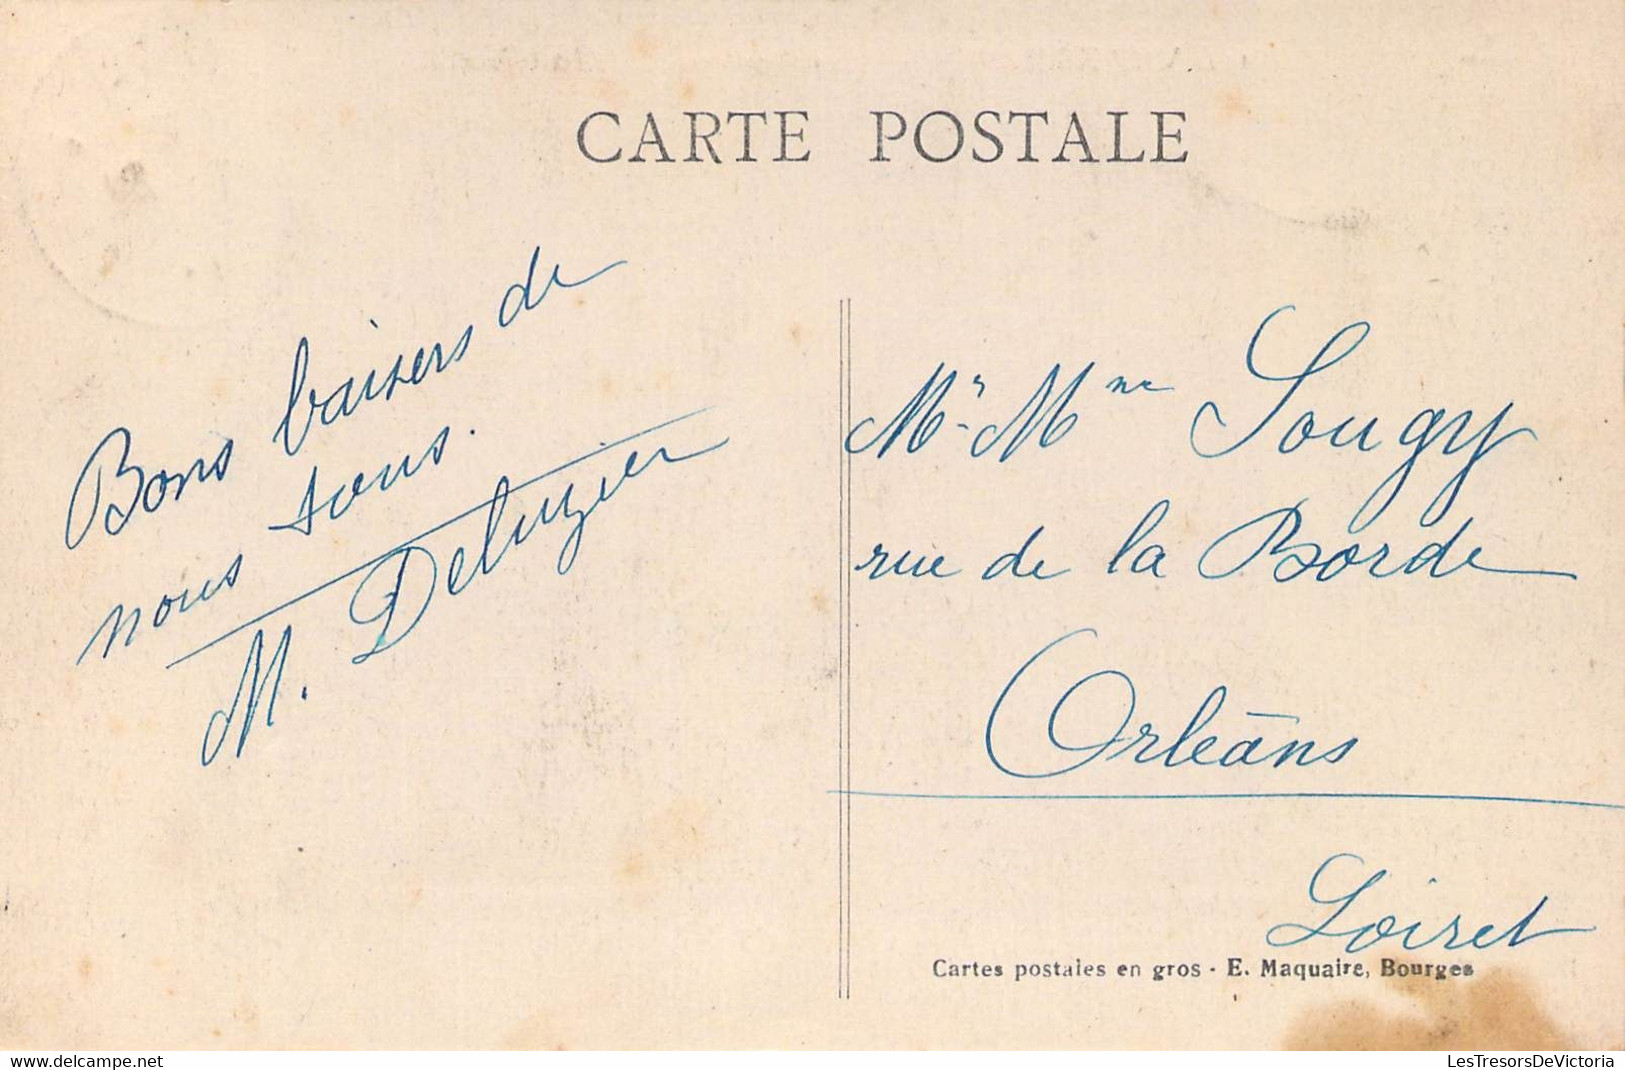 CARTE POSTALE
Bons baisers de
nous tous.
M. Deluzier
Mr Mme Sougy
rue de la Borde
Orléans
Loiret
Cartes postales en gros - E. Maquaire, Bourges
www.delcampe.net
LesTresorsDeVictoria